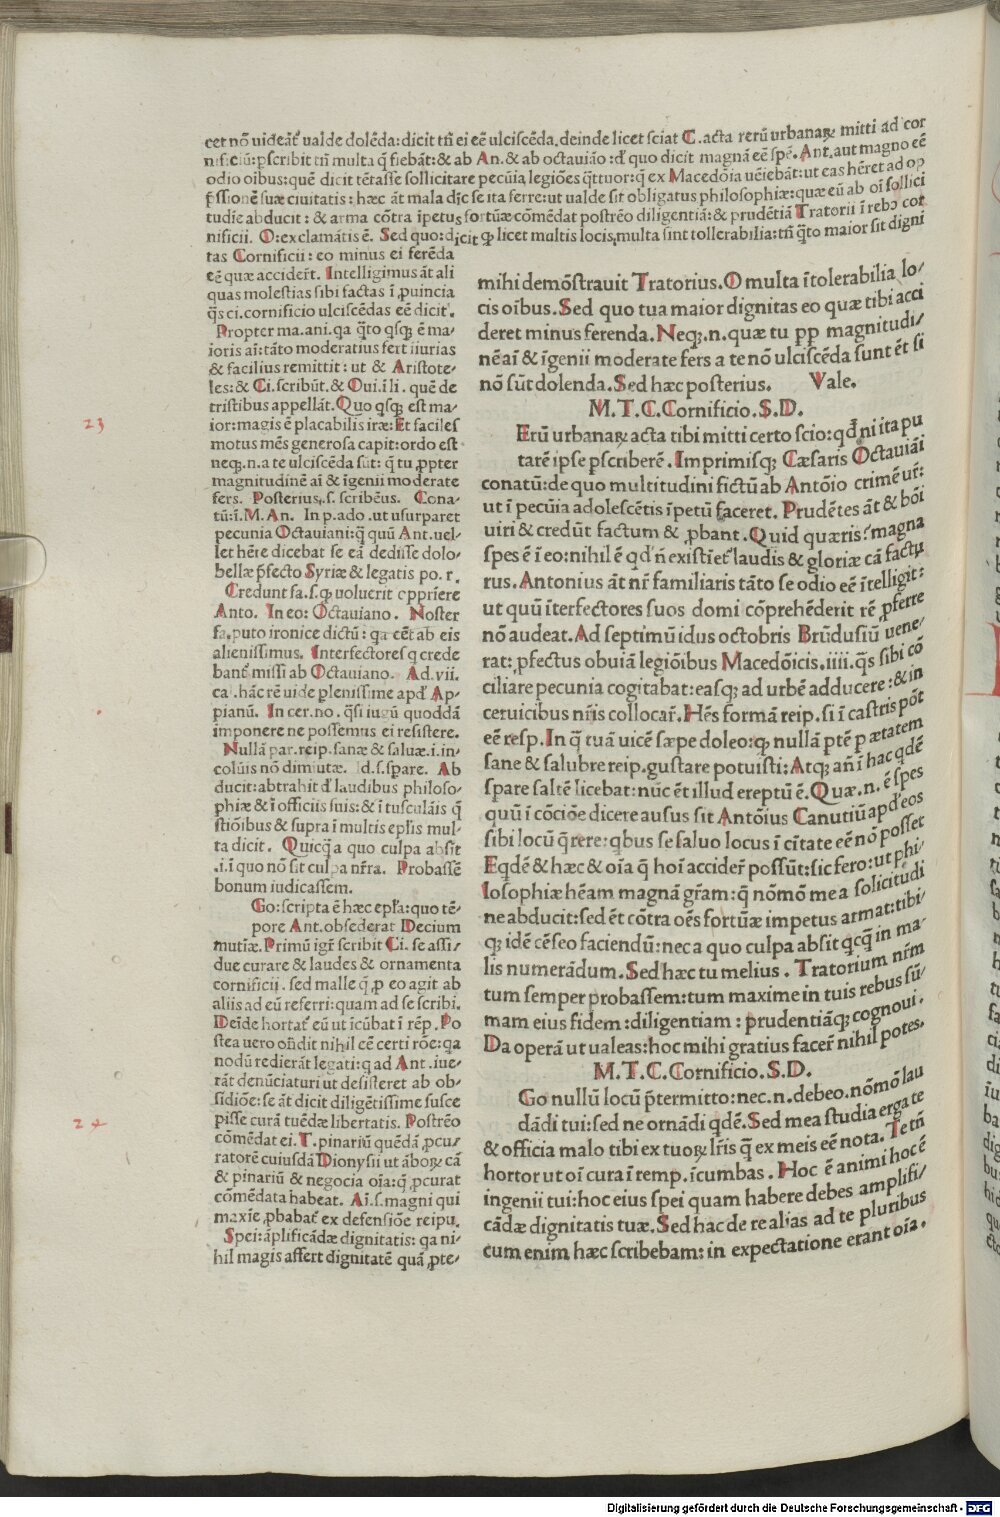 cet nō uideāt᷑ ualde dolēda: dicit tn̄ ei eē ulciscēda. deinde licet sciat C. acta rerū urbanaꝝ mitti ad cor
nificiū: ꝑscribit tn̄ multa q̄ fiebāt: & ab An. & ab octauiāo: đ quo dicit magnā eē spē. Ant. aut magno eē
odio oibus: quē dicit tētasse sollicitare pecūia legiões q̄ttuor: q̄ ex Macedōia uēiebāt: ut eas hēret ad op
p̄ssionē suæ ciuitatis: hæc āt mala dic̄ se ita ferre: ut ualde sit obligatus philosophiæ: quæ eū ab oī sollici
tudīe abducit: & arma cōtra īpetus fortūæ cōmēdat postrēo diligentiā: & prudētiā Tratorii ī rebꝰ cor
nificii. O: exclamātis ē. Sed quo: dicit ꝙ licet multis locis multa sint tollerabilia: tn̄ q̄to maior sit digni
tas Cornificii: eo minus ei ferēda
eē quæ acciderīt. Intelligimus āt ali
quas molestias sibi factas ī ꝓuincia
q̄s ci. cornificio ulciscēdas eē dicit.
Propter ma. ani. qa q̄to qsq; ē ma/
ioris aī: tāto moderatius fert iiurias
& facilius remittit: ut & Aristote/
les: & Ci. scribūt. & Oui. ī li. quē de
tristibus appellāt. Quo qsq; est ma/
ior: magis ē placabilis iræ: Et faciles
motus mēs generosa capit: ordo est
neq;. n. a te ulciscēda sūt: q̄ tu ꝓpter
magnitudinē aī & īgenii moderate
fers. Posterius. s. scribēus. Cona/
tū: ī. M. An. In p. ado. ut usurparet
pecunia Octauiani: q̄ quū Ant. uel/
let hēre dicebat se eā dedisse dolo/
bellæ p̄fecto Syriæ & legatis po. r.
Credunt fa. s. ꝙ uoluerit oppriere
Anto. In eo: Octauiano. Noster
fa. puto ironice dictū: qa cēt ab eis
alienissimus. Interfectores q crede
bant᷑ missi ab Octauiano. Ad. vii.
ca. hāc rē uide plenissime apđ Ap/
pianū. In cer. no. q̄si iugū quoddā
imponere ne possemus ei resistere.
Nullā par. reip. sanæ & saluæ. i. in/
colūis nō dimiutæ. Id. s. spare. Ab
ducit: abtrahit đ laudibus philoso/
phiæ & ī officiis suis: & ī tusculāis q̄
stiōibus & supra ī multis ep̄lis mul/
ta dicit. Quicq̄ a quo culpa absit
.i. ī quo nō sit culpa nr̄a. Probassē
bonum iudicassem.
Go: scripta ē hæc epl̄a: quo tē/
pore Ant. obsederat Decium
mutīæ. Primū igr̄ scribit Ci. se assi/
due curare & laudes & ornamenta
cornificii. sed malle q̄ p eo agit ab
aliis ad eū referri: quam ad se scribi.
Deīde hortat᷑ eū ut īcūbat ī rēp. Po
stea uero on̄dit nihil cē certi rōe: qa
nodū redierāt legati: q ad Ant. iue/
rāt denūciaturi ut desisteret ab ob/
sidiōe: se āt dicit diligētissime susce
pisse curā tuēdæ libertatis. Postrēo
cōmēdat ei. T. pinariū quēdā ꝓcu/
ratorē cuiusdā Dionysii ut āboꝝ cā
& pinariū & negocia oīa: q̄ ꝓcurat
cōmēdata habeat. Aī. s. magni qui
maxīe ꝓbabat᷑ ex defensiōe reipu.
Spei: āplificādæ dignitatis: qa ni/
hil magis affert dignitatē quā ꝓte/
mihi demōstrauit Tratorius. O multa ītolerabilia lo/
cis oībus. Sed quo tua maior dignitas eo quæ tibi acci
deret minus ferenda. Neq;. n. quæ tu pp magnitudi/
nē aī & īgenii moderate fers a te nō ulciscēda sunt ēt si
nō sūt dolenda. Sed hæc posterius. Vale.
M. T. C. Cornificio. S. D.
Erū urbanaꝝ acta tibi mitti certo scio: qđ ni ita pu
tarē ipse pscriberē. Imprimisq; Cæsaris Octauiāi
conatū: de quo multitudini fictū ab Antōio crimē ur̄:
ut ī pecūia adolescētis īpetū faceret. Prudētes āt & bōi
uiri & credūt factum & ꝓbant. Quid quæris? magna
spes ē ī eo: nihil ē qđ n̄ existīet᷑ laudis & gloriæ cā factu
rus. Antonius āt nr̄ familiaris tāto se odio eē ītelligit:
ut quū īterfectores suos domi cōprehēderit rē ꝓferre
nō audeat. Ad septimū idus octobris Brūdusiū uene/
rat: ꝓfectus obuiā legiōibus Macedōicis. iiii. q̄s sibi cō
ciliare pecunia cogitabat: easq; ad urbē adducere: & in
ceruicibus nr̄is collocar̄. Hēs formā reip. si ī castris pōt
eē resp. In q̄ tuā uicē sæpe doleo: ꝙ nullā ptē p ætatem
sane & salubre reip. gustare potuisti: Atq; añ ī hac qđē
spare saltē licebat: nūc ēt illud ereptū ē. Quæ. n. ē spes
quū ī cōciōe dicere ausus sit Antōius Canutiū apđ eos
sibi locū q̄rere: qbus se saluo locus ī cītate eē nō posset
Eqđē & hæc & oīa q̄ hoī accider̄ possūt: sic fero: ut phi/
losophiæ hēam magnā gr̄am: q̄ nōmō me a solicitudi
ne abducit: sed ēt cōtra oēs fortūæ impetus armat: tibi/
q; idē cēseo faciendū: nec a quo culpa absit qcq̄ in ma/
lis numerādum. Sed hæc tu melius. Tratorium nr̄m
tum semper probassem: tum maxime in tuis rebus sū/
mam eius fidem: diligentiam: prudentiāq; cognoui.
Da operā ut ualeas: hoc mihi gratius facer̄ nihil potes.
M. T. C. Cornificio. S. D.
Go nullū locū p̄termitto: nec. n. debeo. nōmō lau
dādi tui: sed ne ornādi qđē. Sed mea studia erga te
& officia malo tibi ex tuoꝝ lr̄is q̄ ex meis eē nota. Te tn̄
hortor ut oī cura ī remp. īcumbas. Hoc ē animi hoc ē
ingenii tui: hoc eius spei quam habere debes amplifi/
cādæ dignitatis tuæ. Sed hac de re alias ad te pluribus
cum enim hæc scribebam: in expectatione erant oīa.
23
24
Digitalisierung gefördert durch die Deutsche Forschungsgemeinschaft - DFG